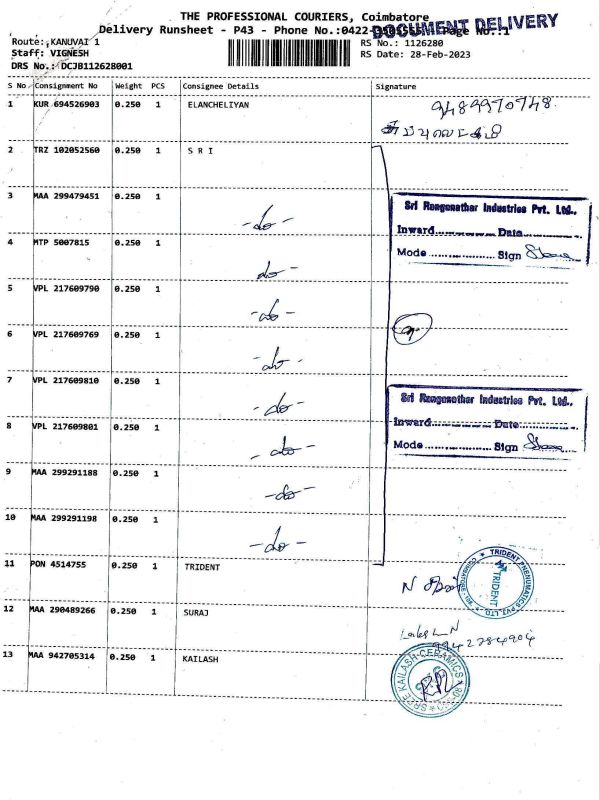 THE PROFESSIONAL COURIERS, Coimbatore
Delivery Runsheet - P43 - Phone No.:0422- Page No.:1
DOCUMENT DELIVERY
Route: KANUVAI 1
RS No.: 1126280
Staff: VIGNESH
RS Date: 28-Feb-2023
DRS No.: DCJB112628001
S No Consignment No Weight PCS Consignee Details Signature
1 KUR 694526903 0.250 1 ELANCHELIYAN
9489970748
2 TRZ 102052560 0.250 1 S R I
3 MAA 299479451 0.250 1 -do-
Sri Ranganathar Industries Pvt. Ltd.,
Inward Date
Mode Sign
4 MTP 5007815 0.250 1 do-
5 VPL 217609790 0.250 1 -do-
6 VPL 217609769 0.250 1 -do-
7 VPL 217609810 0.250 1 -do-
Sri Ranganathar Industries Pvt. Ltd.,
Inward Date
Mode Sign
8 VPL 217609801 0.250 1 -do-
9 MAA 299291188 0.250 1 -do-
10 MAA 299291198 0.250 1 -do-
11 PON 4514755 0.250 1 TRIDENT
TRIDENT PNEUMATICS PVT. LTD.
COIMBATORE
TRIDENT
12 MAA 290489266 0.250 1 SURAJ
9942284904
13 MAA 942705314 0.250 1 KAILASH
SREE KAILASH CERAMICS